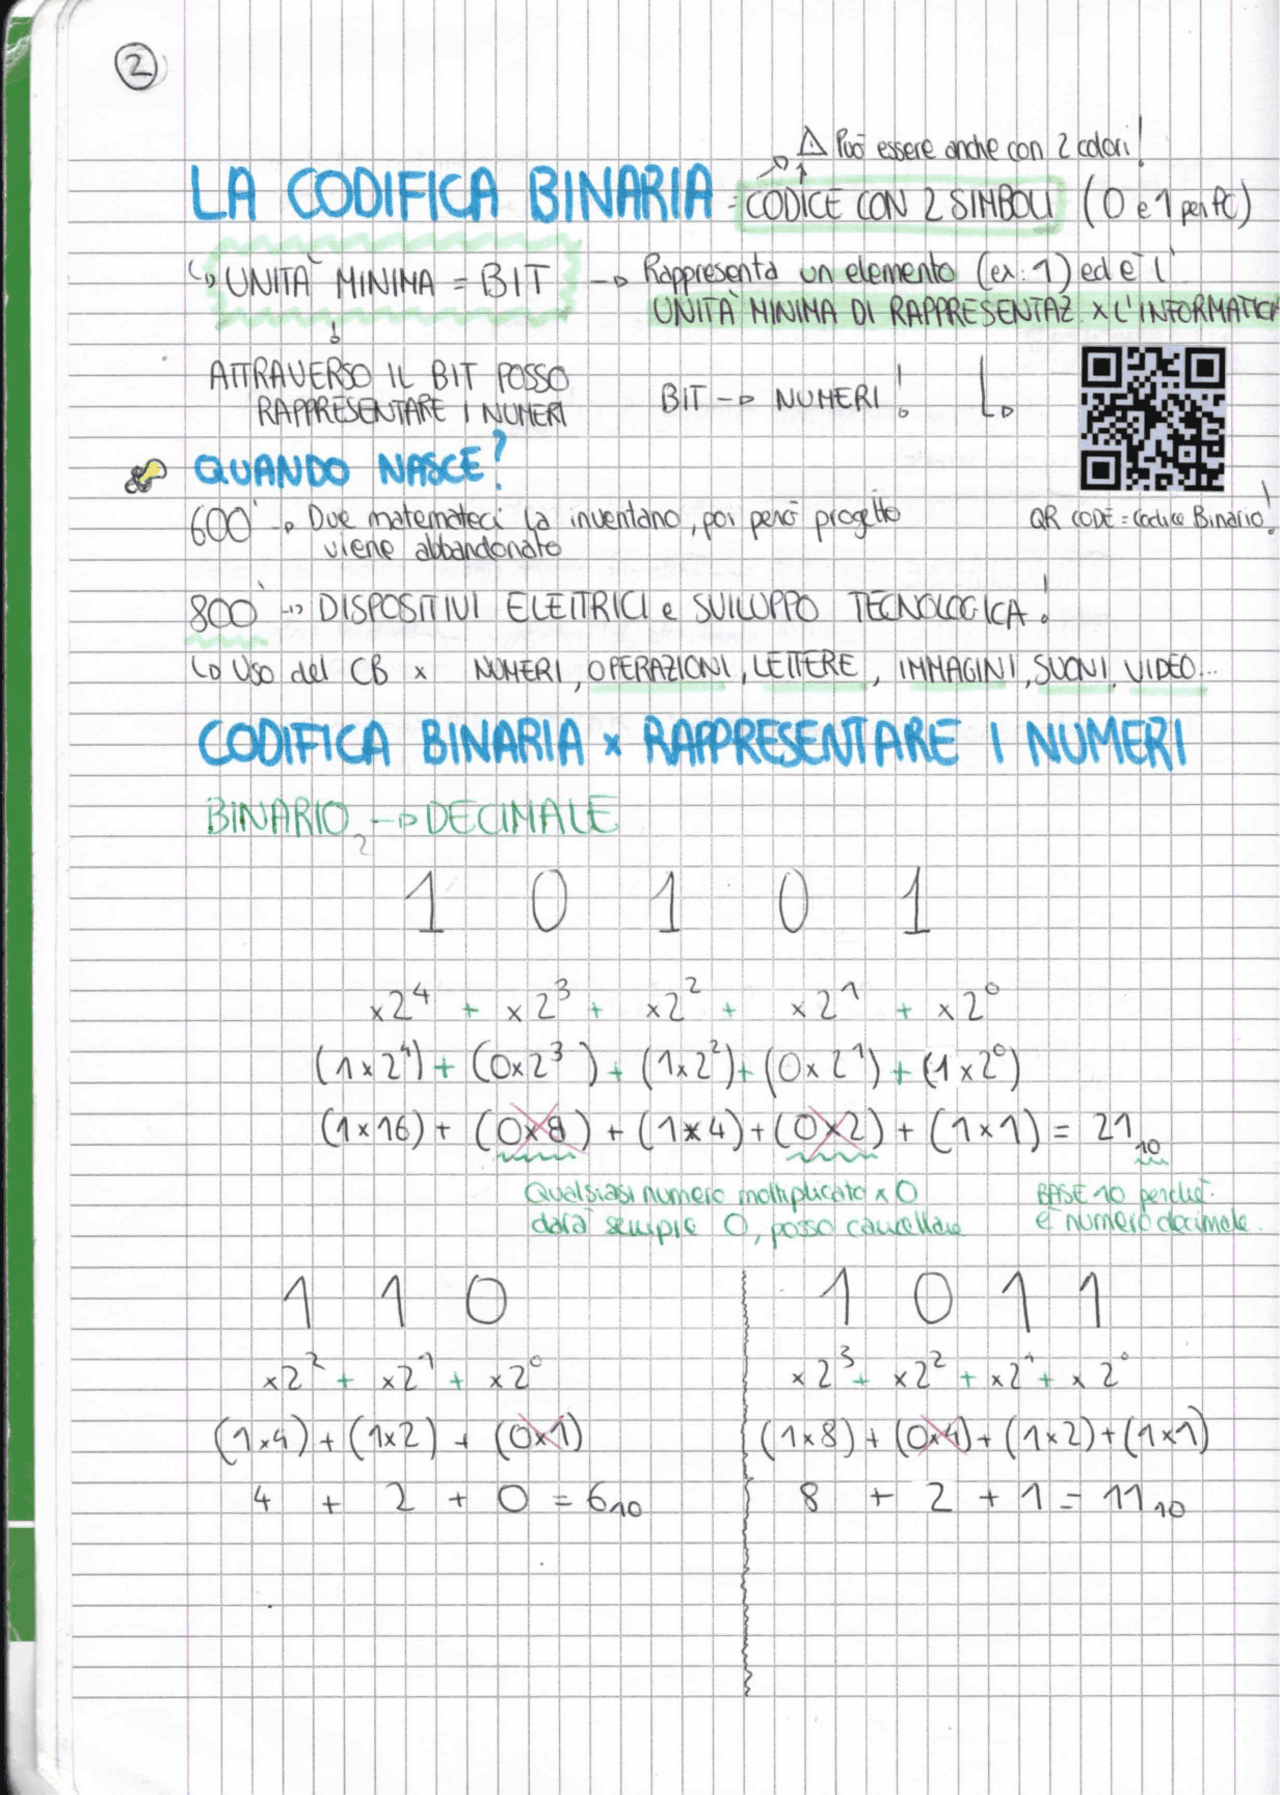 2
⚠ Può essere anche con 2 colori!
LA CODIFICA BINARIA = CODICE CON 2 SIMBOLI (0 e 1 per PC)
↳ UNITÀ MINIMA = BIT → Rappresenta un elemento (ex: 1) ed è l'
UNITÀ MINIMA DI RAPPRESENTAZ. x L'INFORMATICA
ATTRAVERSO IL BIT POSSO
RAPPRESENTARE I NUMERI
BIT → NUMERI!
QUANDO NASCE?
600' → Due matemateci la inventano, poi però progetto
viene abbandonato
QR CODE = Codice Binario!
800' → DISPOSITIVI ELETTRICI e SVILUPPO TECNOLOGICA!
↳ Uso del CB x NUMERI, OPERAZIONI, LETTERE, IMMAGINI, SUONI, VIDEO...
CODIFICA BINARIA x RAPPRESENTARE I NUMERI
BINARIO₂ → DECIMALE
1 0 1 0 1
x2⁴ + x2³ + x2² + x2¹ + x2⁰
(1x2⁴) + (0x2³) + (1x2²) + (0x2¹) + (1x2⁰)
(1x16) + (0x8) + (1x4) + (0x2) + (1x1) = 21₁₀
Qualsiasi numero moltiplicato x 0
darà sempre 0, posso cancellare
BASE 10 perché
è numero decimale.
1 1 0
x2² + x2¹ + x2⁰
(1x4) + (1x2) + (0x1)
4 + 2 + 0 = 6₁₀
1 0 1 1
x2³ + x2² + x2¹ + x2⁰
(1x8) + (0x4) + (1x2) + (1x1)
8 + 2 + 1 = 11₁₀